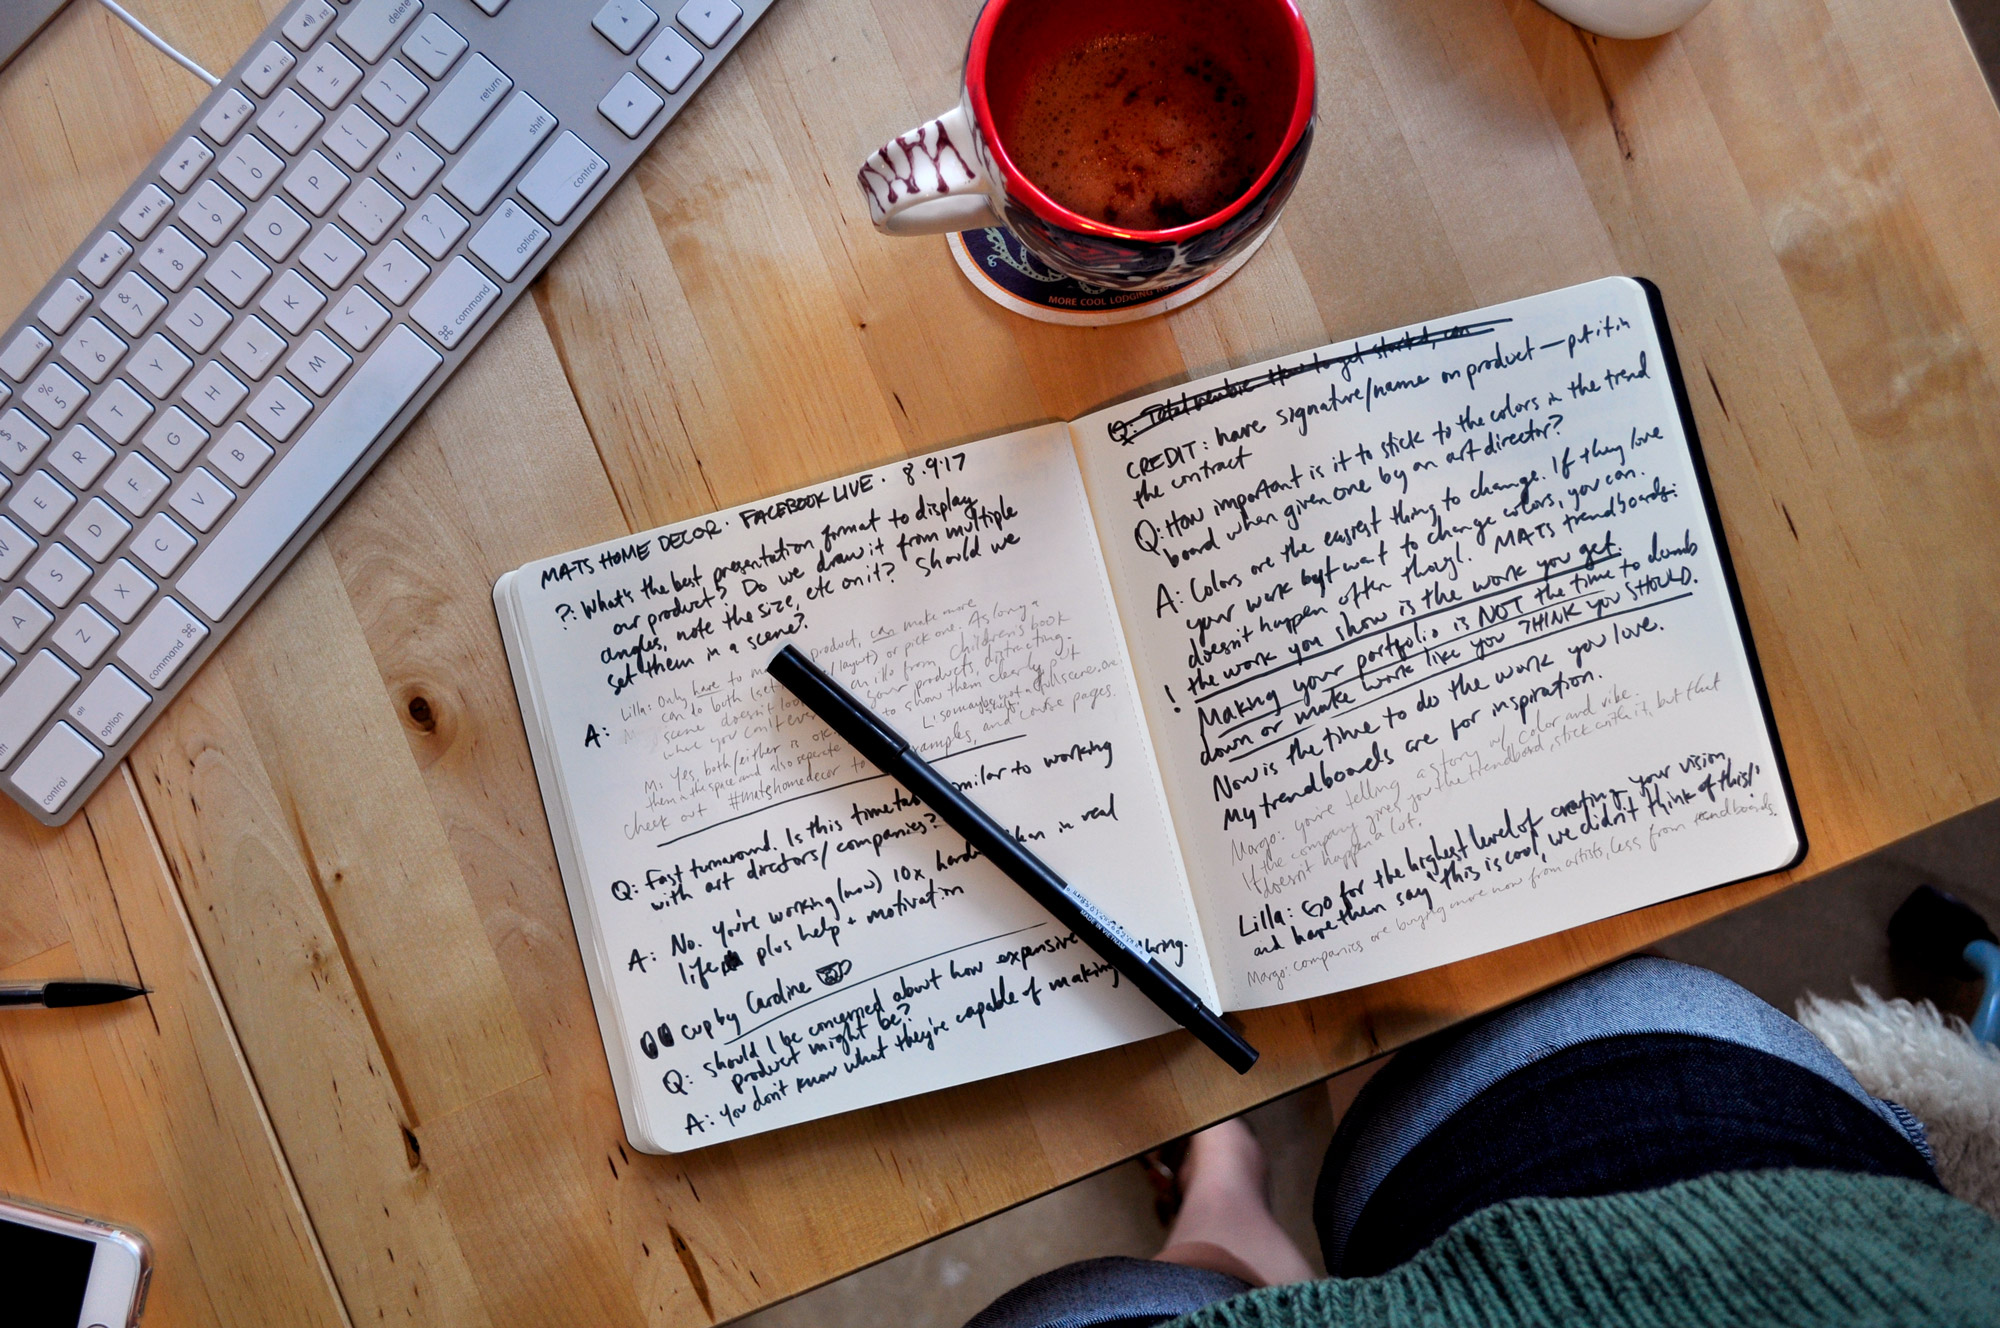 MATS HOME DECOR · FACEBOOK LIVE · 8.9.17
?: What's the best presentation format to display
our product? Do we draw it from multiple
angles, note the size, etc on it? Should we
set them in a scene?
A: Lilla: Only have to product, can make more
can do both or pick one. As long a
scene doesn't an illo from Children's book
where you can't even your products, distracting.
M: Yes, both/either is ok to show them clearly put
them in the space and also separate Li so maybe not a full scene
check out #matshomedecor to examples, and course pages.
Q: Fast turnaround. Is this similar to working
with art directors/companies?
A: No. You're working (now) 10x than in real
life plus help + motivation
cup by Caroline
Q: Should I be concerned about how expensive
product might be?
A: You don't know what they're capable of making
Q: Total newbie. How to get started, can
CREDIT: have signature/name on product — put it in
the contract
Q: How important is it to stick to the colors in the trend
board when given one by an art director?
A: Colors are the easiest thing to change. If they love
your work but want to change colors, you can.
doesn't happen often though. MATs trendboards:
! the work you show is the work you get.
Making your portfolio is NOT the time to dumb
down or make work like you THINK you SHOULD.
Now is the time to do the work you love.
My trendboards are for inspiration.
Margo: you're telling a story w/ color and vibe.
If the company gives you the trendboard, stick with it, but that
doesn't happen a lot.
Lilla: Go for the highest level of creating your vision
and have them say "this is cool, we didn't think of this!"
Margo: companies are buying more now from artists, less from trendboards.
MORE COOL LODGING
MADE IN VIETNAM
delete
return
shift
control
alt
option
command
0
9
8
&
7
^
6
%
5
$
4
P
O
I
U
Y
T
R
E
W
L
K
J
H
G
F
D
S
A
M
N
B
V
C
X
Z
command
alt
option
control